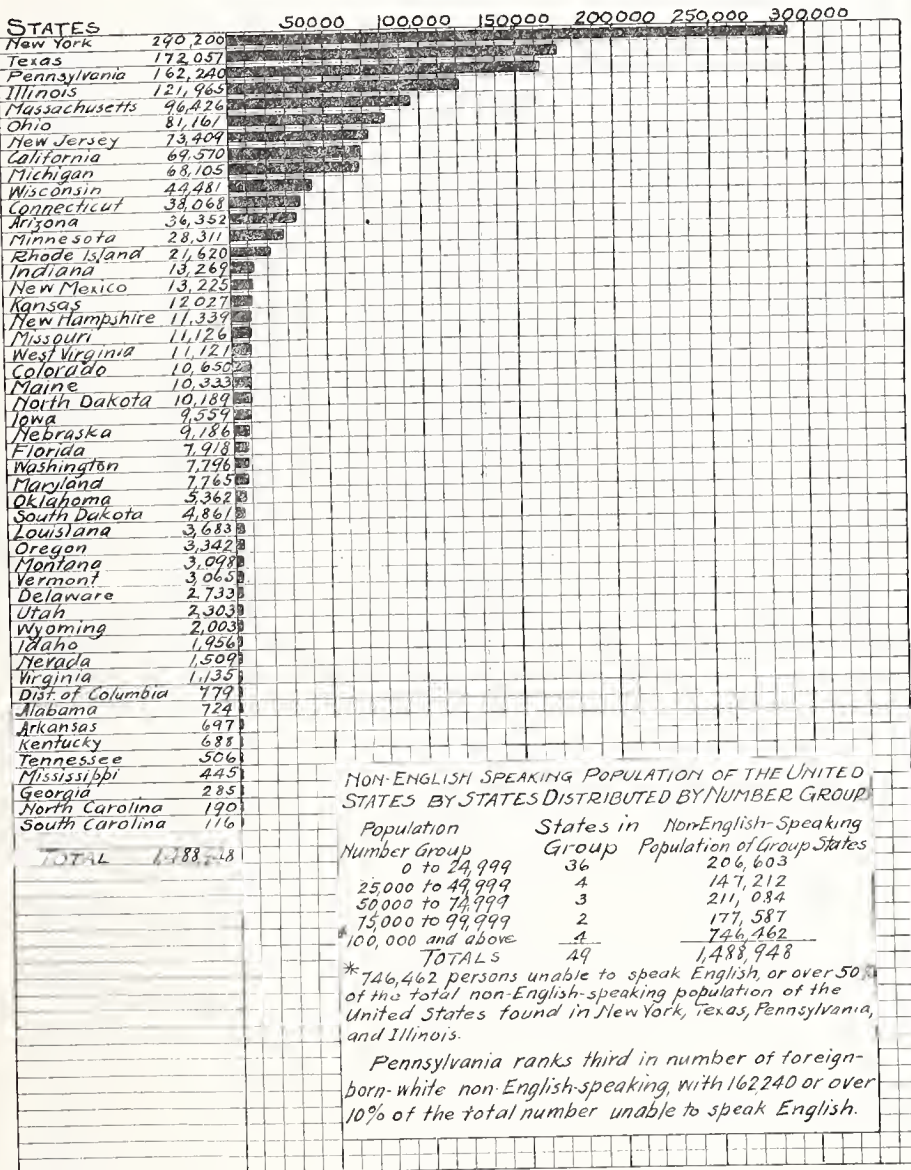 50000 100,000 150,000 200,000 250,000 300,000
STATES
New York 290,200
Texas 172,057
Pennsylvania 162,240
Illinois 121,965
Massachusetts 96,426
Ohio 81,161
New Jersey 73,409
California 69,570
Michigan 68,105
Wisconsin 44,481
Connecticut 38,068
Arizona 36,352
Minnesota 28,311
Rhode Island 21,620
Indiana 13,269
New Mexico 13,225
Kansas 12027
New Hampshire 11,339
Missouri 11,126
West Virginia 11,121
Colorado 10,650
Maine 10,333
North Dakota 10,189
Iowa 9,559
Nebraska 9,186
Florida 7,918
Washington 7,796
Maryland 7,765
Oklahoma 5,362
South Dakota 4,861
Louisiana 3,683
Oregon 3,342
Montana 3,098
Vermont 3,065
Delaware 2,733
Utah 2,303
Wyoming 2,003
Idaho 1,956
Nevada 1,509
Virginia 1,135
Dist. of Columbia 779
Alabama 724
Arkansas 697
Kentucky 688
Tennessee 506
Mississippi 445
Georgia 285
North Carolina 190
South Carolina 116
TOTAL
NON-ENGLISH SPEAKING POPULATION OF THE UNITED
STATES BY STATES DISTRIBUTED BY NUMBER GROUP
Population States in Non-English-Speaking
Number Group Group Population of Group States
0 to 24,999 36 206,603
25,000 to 49,999 4 147,212
50,000 to 74,999 3 211,084
75,000 to 99,999 2 177,587
*100,000 and above 4 746,462
TOTALS 49 1,488,948
*746,462 persons unable to speak English, or over 50%
of the total non-English-speaking population of the
United States found in New York, Texas, Pennsylvania,
and Illinois.
Pennsylvania ranks third in number of foreign-
born-white non-English-speaking, with 162,240 or over
10% of the total number unable to speak English.